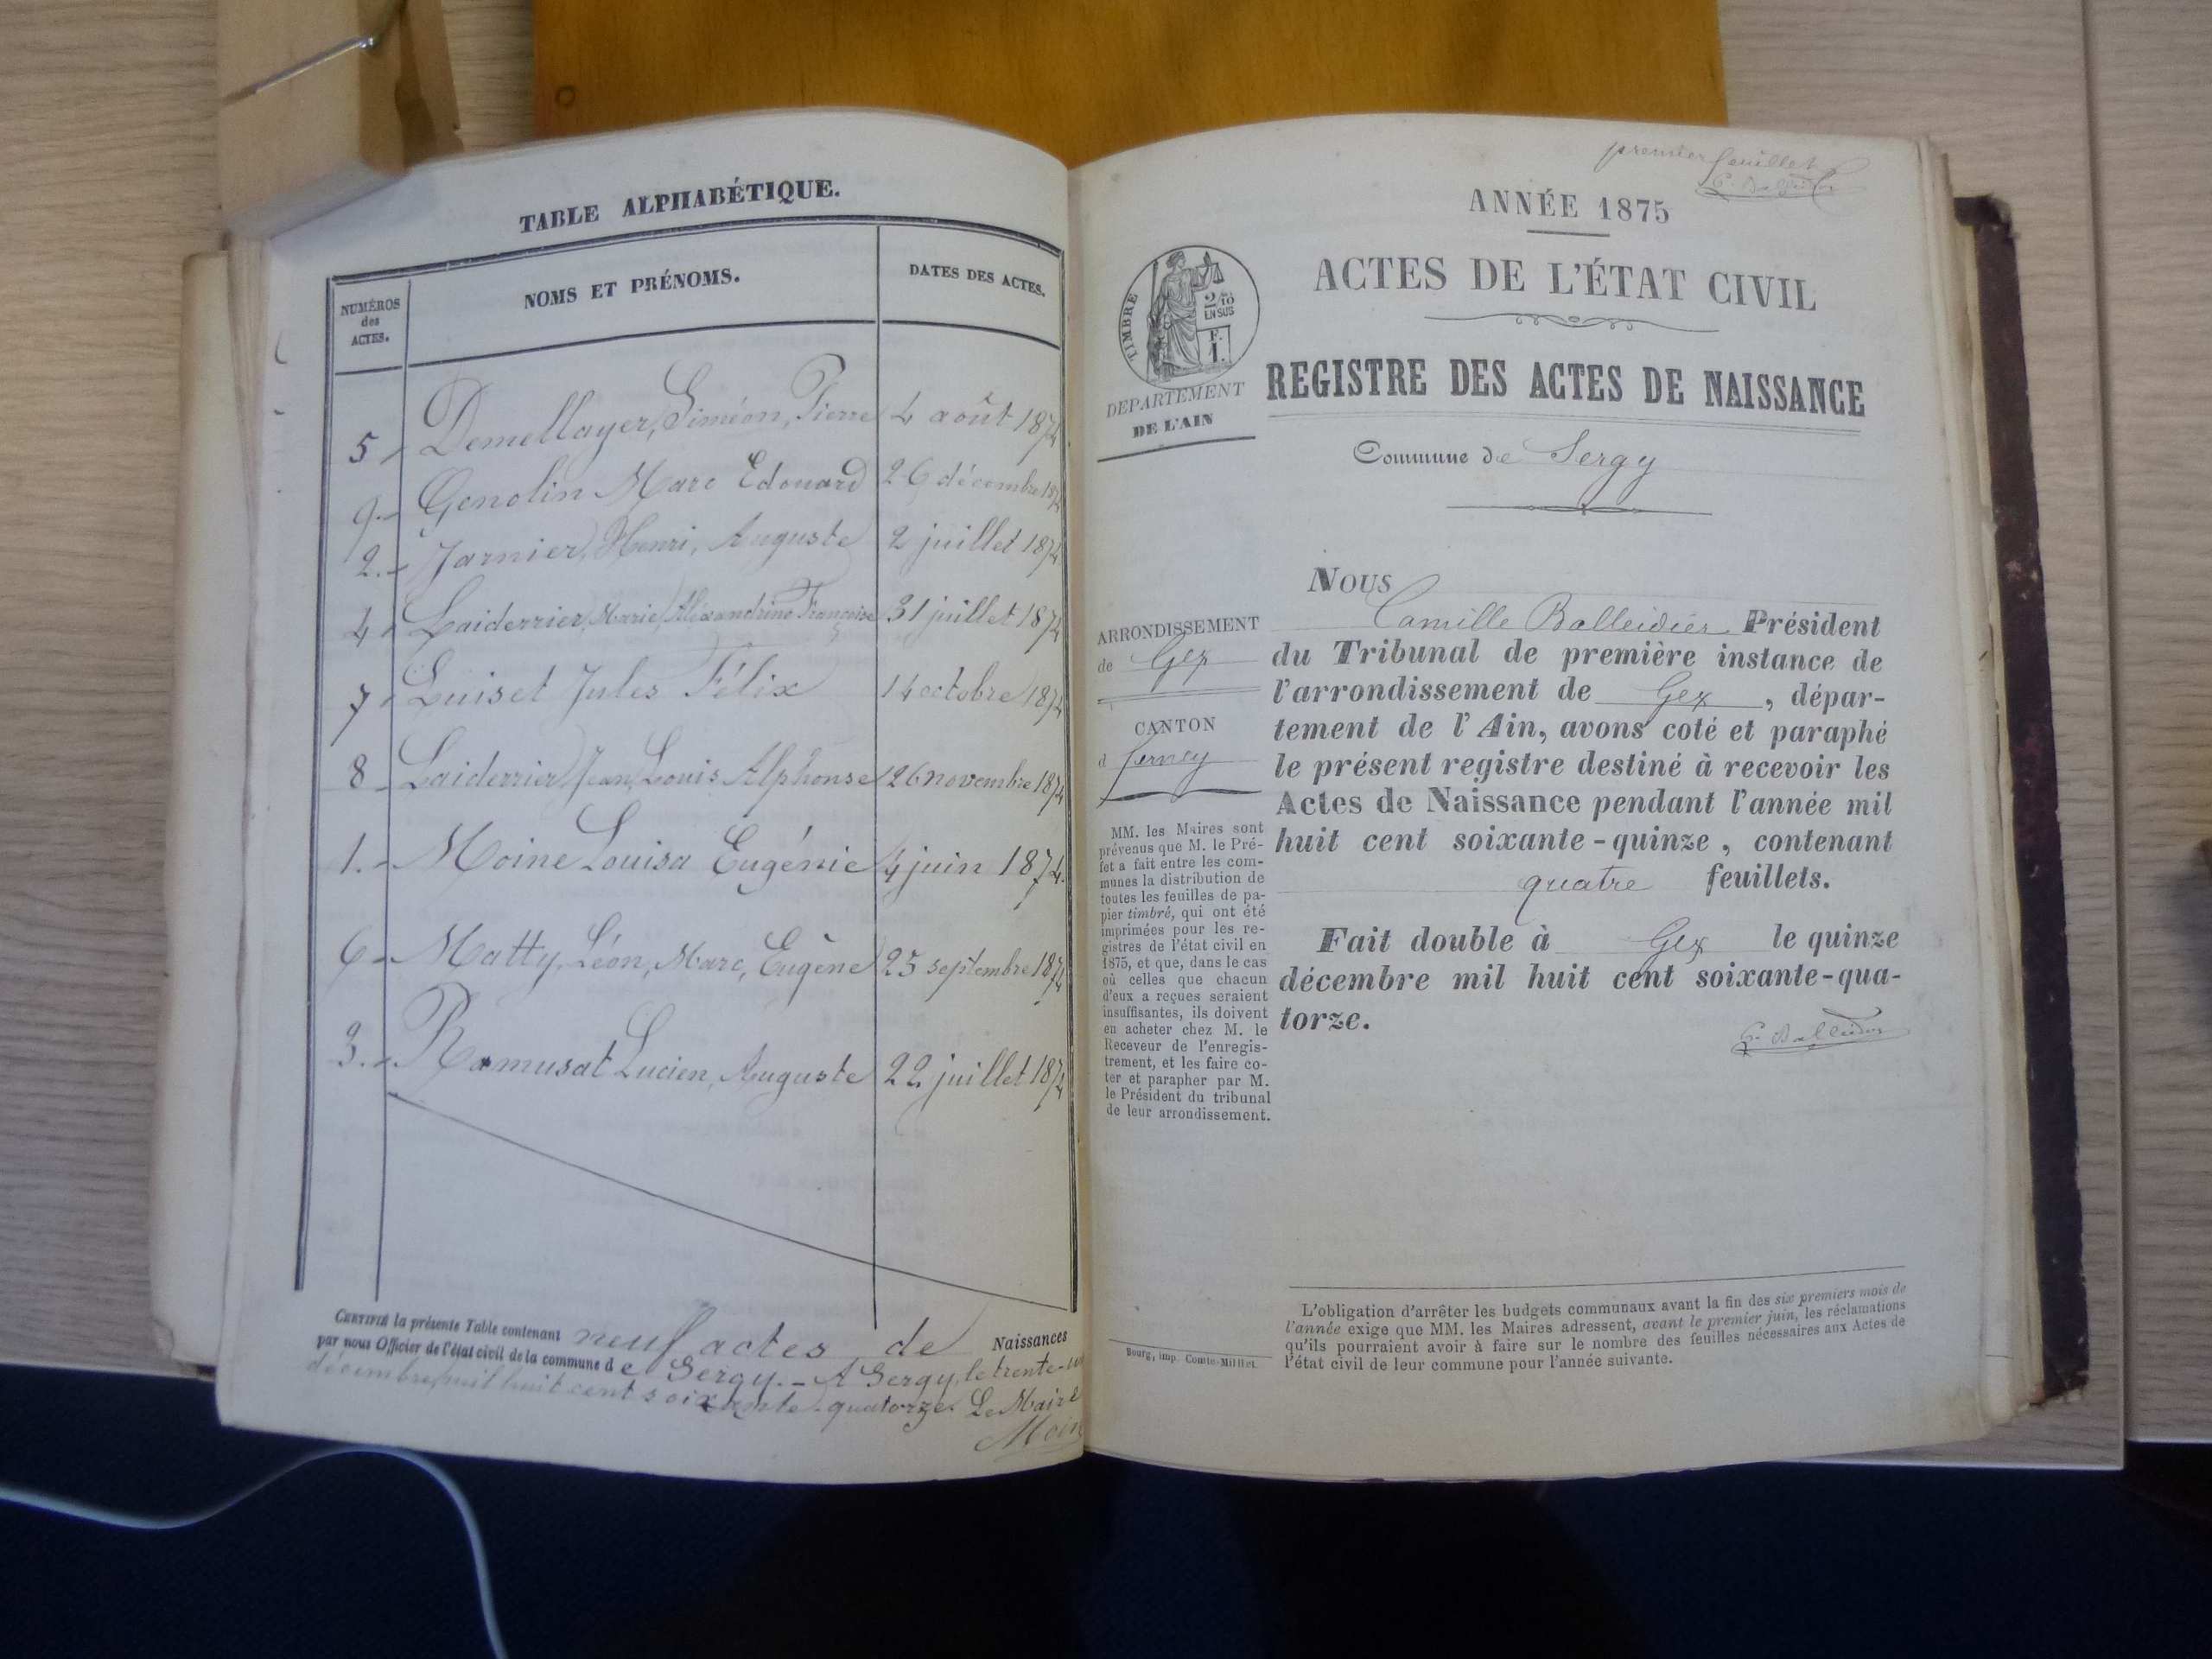 TABLE ALPHABÉTIQUE.
NUMÉROS des ACTES.
NOMS ET PRÉNOMS.
DATES DES ACTES.
5 Demellayer, Siméon, Pierre 4 août 1874
9.- Genolin Marc Edouard 26 décembre 1874
2.- Jarnier, Henri, Auguste 2 juillet 1874
4 Laiderrier, Marie, Alexandrine Françoise 31 juillet 1874
7 Luiset Jules Félix 14 octobre 1874
8 Laiderrier, Jean, Louis Alphonse 26 novembre 1874
1.- Moine Louisa Eugénie 4 juin 1874.
6 Matty, Léon, Marc, Eugène 25 septembre 1874
3.- Ramusat Lucien, Auguste 22 juillet 1874
CERTIFIÉ la présente Table contenant neuf actes de Naissances
par nous Officier de l'état civil de la commune de Sergy.- A Sergy, le trente-un
décembre mil huit cent soixante-quatorze. Le Maire
Moine
premier feuillet
ANNÉE 1875
ACTES DE L'ÉTAT CIVIL
TIMBRE
2/10 EN SUS
F. 1.
DEPARTEMENT
DE L'AIN
REGISTRE DES ACTES DE NAISSANCE
Commune de Sergy
ARRONDISSEMENT
de Gex
CANTON
d Ferney
MM. les Maires sont
prévenus que M. le Pré-
fet a fait entre les com-
munes la distribution de
toutes les feuilles de pa-
pier timbré, qui ont été
imprimées pour les re-
gistres de l'état civil en
1875, et que, dans le cas
où celles que chacun
d'eux a reçues seraient
insuffisantes, ils doivent
en acheter chez M. le
Receveur de l'enregis-
trement, et les faire co-
ter et parapher par M.
le Président du tribunal
de leur arrondissement.
Nous
Camille Balleidier Président
du Tribunal de première instance de
l'arrondissement de Gex, dépar-
tement de l'Ain, avons coté et paraphé
le présent registre destiné à recevoir les
Actes de Naissance pendant l'année mil
huit cent soixante-quinze, contenant
quatre feuillets.
Fait double à Gex le quinze
décembre mil huit cent soixante-qua-
torze.
Bourg, imp. Comte-Milliet.
L'obligation d'arrêter les budgets communaux avant la fin des six premiers mois de
l'année exige que MM. les Maires adressent, avant le premier juin, les réclamations
qu'ils pourraient avoir à faire sur le nombre des feuilles nécessaires aux Actes de
l'état civil de leur commune pour l'année suivante.